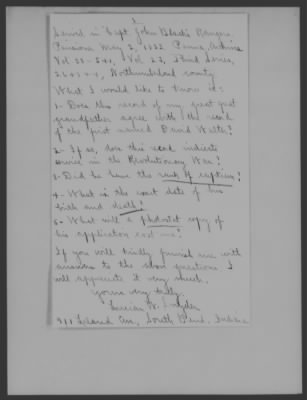 Served in Capt. John Black's Rangers.
Pensioner May 2, 1833. Penna. Archives
Vol. 23, Third Series,
Northumberland county
What I would like to know is:
1- Does the record of my great great
grandfather agree with the record
of the first named David Watts?
2- If so, does this record indicate
service in the Revolutionary War?
3- Did he have the rank of captain?
4- What is the exact date of his
birth and death?
5- What will a photostat copy of
his application cost me?
If you will kindly furnish me with
answers to the above questions I
will appreciate it very much.
Yours very truly,
W. Snyder
911 Leland Ave., South Bend, Indiana